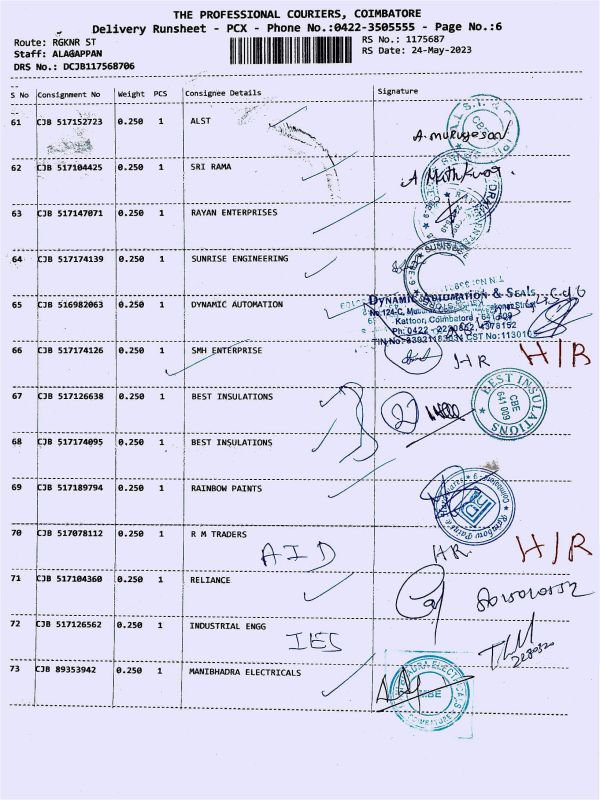 THE PROFESSIONAL COURIERS, COIMBATORE
Delivery Runsheet - PCX - Phone No.:0422-3505555 - Page No.:6
Route: RGKNR ST
RS No.: 1175687
Staff: ALAGAPPAN
RS Date: 24-May-2023
DRS No.: DCJB117568706
S No Consignment No Weight PCS Consignee Details Signature
61 CJB 517152723 0.250 1 ALST
A. murugesan
62 CJB 517104425 0.250 1 SRI RAMA
63 CJB 517147071 0.250 1 RAYAN ENTERPRISES
64 CJB 517174139 0.250 1 SUNRISE ENGINEERING
65 CJB 516982063 0.250 1 DYNAMIC AUTOMATION
DYNAMIC AUTOMATION & SEALS
Kattoor, Coimbatore - 641 009
66 CJB 517174126 0.250 1 SMH ENTERPRISE
HR H/R
67 CJB 517126638 0.250 1 BEST INSULATIONS
2
BEST INSULATIONS
CBE
641 009
68 CJB 517174095 0.250 1 BEST INSULATIONS
69 CJB 517189794 0.250 1 RAINBOW PAINTS
70 CJB 517078112 0.250 1 R M TRADERS
AID HR. H/R
71 CJB 517104360 0.250 1 RELIANCE
72 CJB 517126562 0.250 1 INDUSTRIAL ENGG
IES
73 CJB 89353942 0.250 1 MANIBHADRA ELECTRICALS